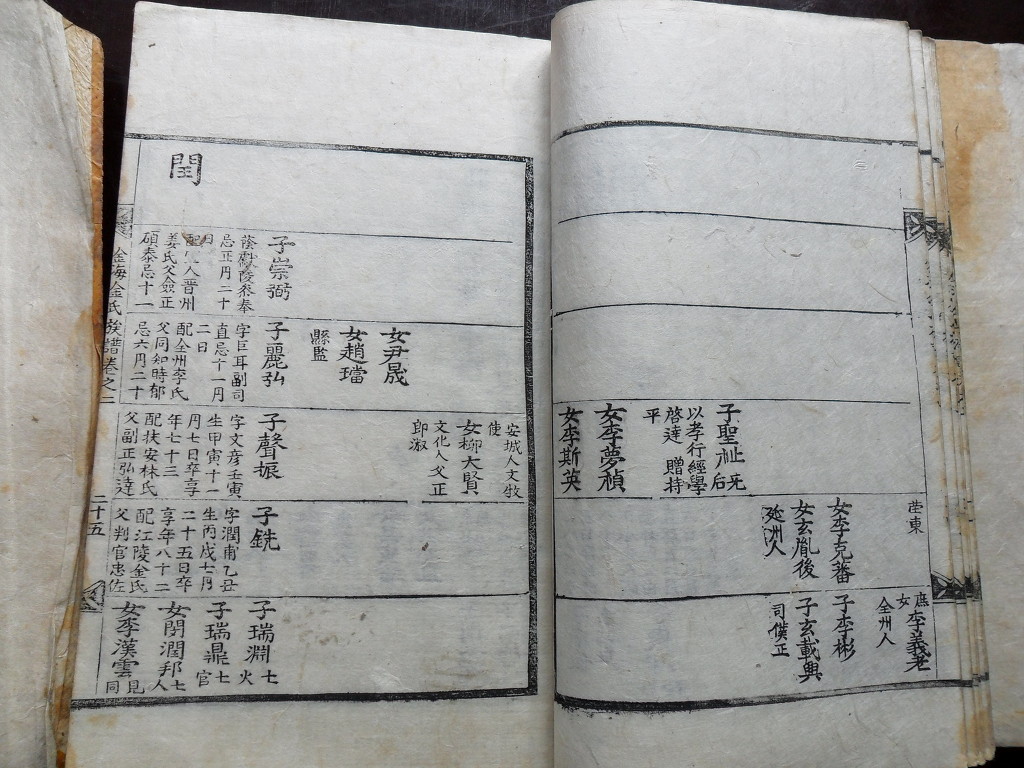 茔東
庶女李義老
全州人
女李克蕃
女玄胤後
延洲人
子李彬
子玄載興
司僕正
子聖祉无后
以孝行經學
啓達 贈持
平
女李夢禎
女李斯英
閏
子崇弼
忌正月二十
姜氏父僉正
碩泰忌十一
女尹晟
女趙璫
縣監
子麗弘
字巨耳副司
直忌十一月
二日
配全州李氏
父同知時郁
忌六月二十
安城人文牧
使
女柳大賢
文化人父正
郎淑
子聲振
字文彦壬寅
生甲寅十一
月七日卒享
年七十三
配扶安林氏
父副正弘達
子銑
字潤甫乙丑
生丙戌七月
二十五日卒
享年八十二
配江陵金氏
父判官忠佐
子瑞淵七火
子瑞鼎七官
女閔潤邦七人
女李漢雲見同
金海金氏族譜卷之一
二十五